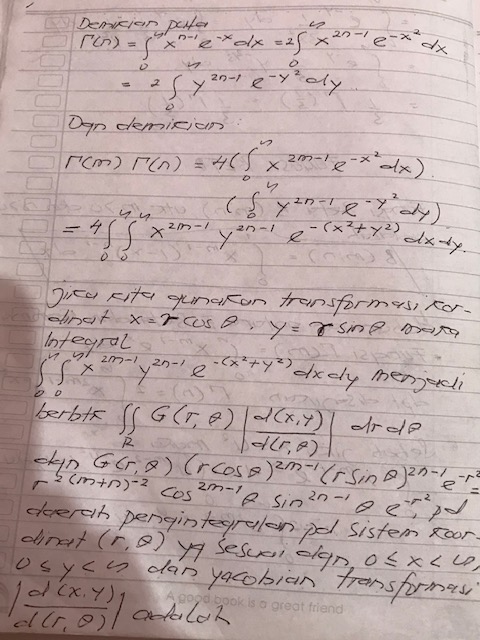 Demikian pula
Γ(n) = ∫₀^∞ x^{n-1} e^{-x} dx = 2∫₀^∞ x^{2n-1} e^{-x²} dx
= 2 ∫₀^∞ y^{2n-1} e^{-y²} dy
Dgn demikian :
Γ(m) Γ(n) = 4(∫₀^∞ x^{2m-1} e^{-x²} dx)
(∫₀^∞ y^{2n-1} e^{-y²} dy)
= 4∫₀^∞ ∫₀^∞ x^{2m-1} y^{2n-1} e^{-(x²+y²)} dx dy.
Jika kita gunakan transformasi koor-
dinat x = r cos θ y = r sin θ maka
Integral
∫₀^∞ ∫₀^∞ x^{2m-1} y^{2n-1} e^{-(x²+y²)} dx dy menjadi
berbtk ∬_R G(r, θ) |d(x,y)/d(r,θ)| dr dθ
dgn G(r, θ) (r cos θ)^{2m-1} (r sin θ)^{2n-1} e^{-r²} =
r^{2(m+n)-2} cos^{2m-1} θ sin^{2n-1} θ e^{-r²}, pd
daerah pengintegralan pd. sistem koor-
dinat (r, θ) yg sesuai dgn 0 ≤ x < ∞,
0 ≤ y < ∞ dan yacobian transformasi
|d(x,y)/d(r,θ)| adalah
A good book is a great friend